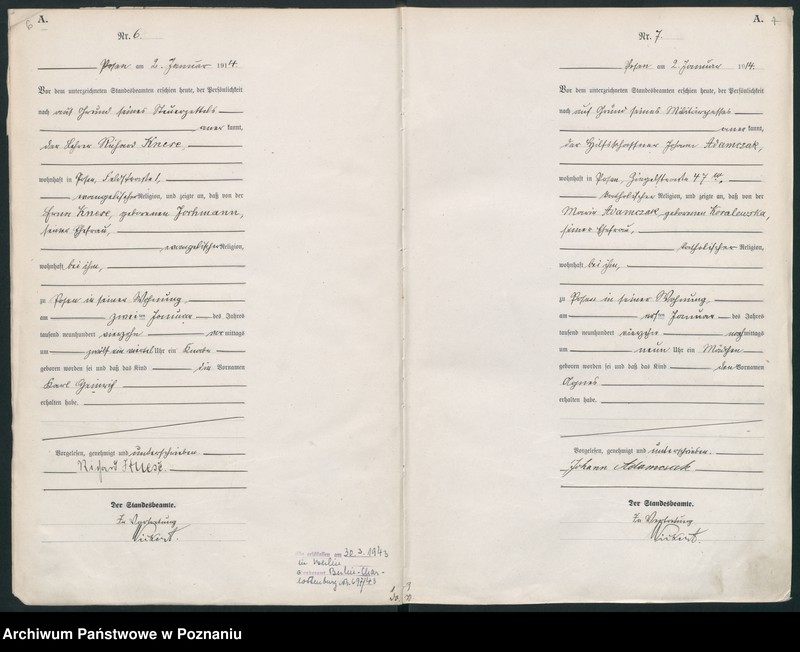 6
A.
Nr. 6.
Posen am 2. Januar 1914.
Vor dem unterzeichneten Standesbeamten erschien heute, der Persönlichkeit
nach auf Grund seines Steuerzettels
anerkannt,
der Lehrer Richard Knese,
wohnhaft in Posen, Feldstraße 1,
evangelischer Religion, und zeigte an, daß von der
Knese, geborenen Jochmann,
seiner Ehefrau,
evangelischer Religion,
wohnhaft bei ihm,
zu Posen in seiner Wohnung
am zweiten Januar des Jahres
tausend neunhundert vierzehn vormittags
um viertel Uhr ein Knabe
geboren worden sei und daß das Kind die Vornamen
Karl Heinrich
erhalten habe.
Vorgelesen, genehmigt und unterschrieben.
Richard Knese
Der Standesbeamte.
In Vertretung
30.3.1943
in Berlin
Berlin-Char-
lottenburg Nr. 697/43
A.
Nr. 7.
Posen am 2. Januar 1914.
Vor dem unterzeichneten Standesbeamten erschien heute, der Persönlichkeit
nach auf Grund seines Militärpasses
anerkannt,
der Hilfsschaffner Johann Adamczak,
wohnhaft in Posen, 47
katholischer Religion, und zeigte an, daß von der
Maria Adamczak, geborenen Kowalewska,
seiner Ehefrau,
katholischer Religion,
wohnhaft bei ihm,
zu Posen in seiner Wohnung
am ersten Januar des Jahres
tausend neunhundert vierzehn nachmittags
um neun Uhr ein Mädchen
geboren worden sei und daß das Kind den Vornamen
Agnes
erhalten habe.
Vorgelesen, genehmigt und unterschrieben.
Johann Adamczak
Der Standesbeamte.
In Vertretung
Archiwum Państwowe w Poznaniu